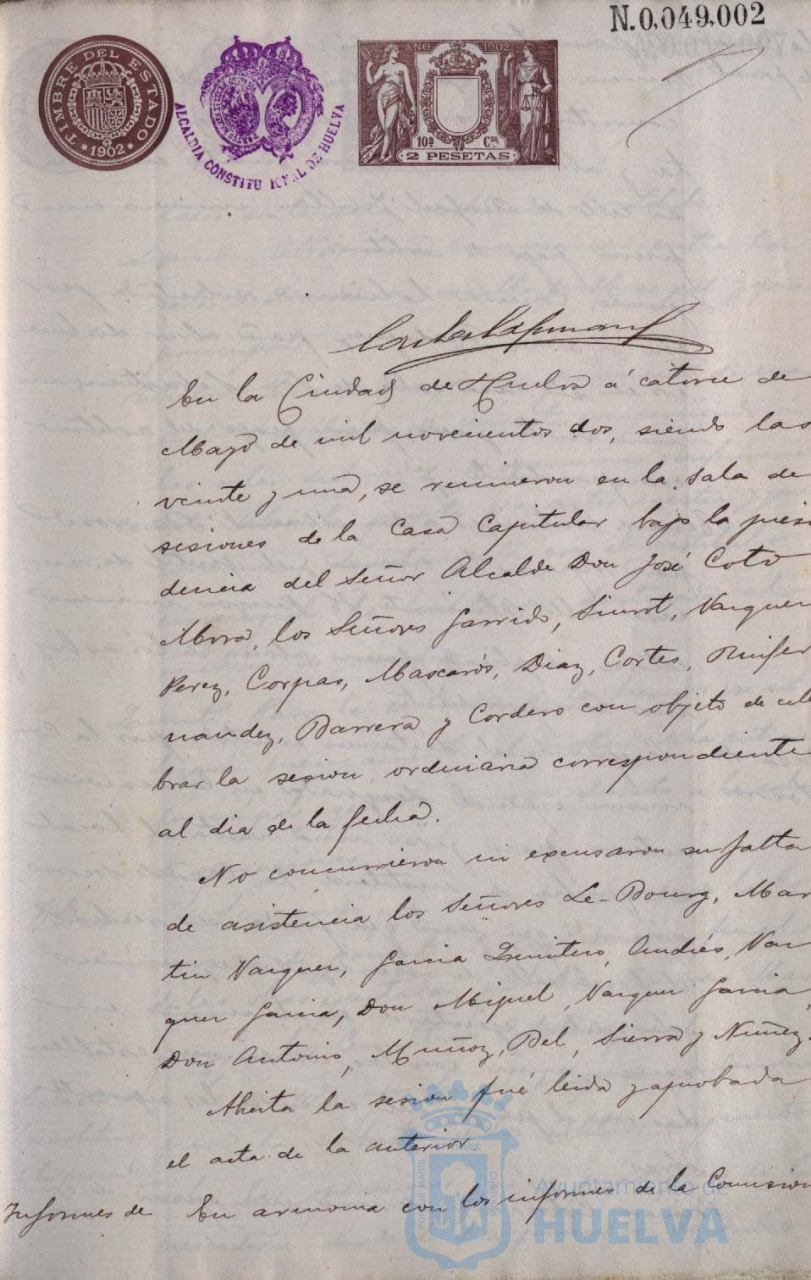 N.0,049,002
TIMBRE DEL ESTADO
1902
ALCALDIA CONSTITUCIONAL DE HUELVA
AÑO 1902
10ª Cse
2 PESETAS
En la Ciudad de Huelva á catorce de
Mayo de mil novecientos dos, siendo las
veinte y una, se reunieron en la Sala de
sesiones de la Casa Capitular bajo la presi
dencia del Señor Alcalde Don José Coto
Mora, los Señores Garrido, Siurot, Vazquez
Perez, Corpas, Mascarós, Diaz, Cortes, Ruifer
nandez, Barrera y Cordero con objeto de cele
brar la sesion ordinaria correspondiente
al dia de la fecha.
No concurrieron ni excusaron su falta
de asistencia los Señores Le-Bourg, Mar
tin Vazquez, Garcia Quintero, Andrés, Vaz
quez Garcia, Don Miguel, Vazquez Garcia
Don Antonio, Muñoz, Bel, Sierra y Nuñez.
Abierta la sesion fué leida y aprobada
el acta de la anterior.
Informes de En armonia con los informes de la Comision
Ayuntamiento de
HUELVA